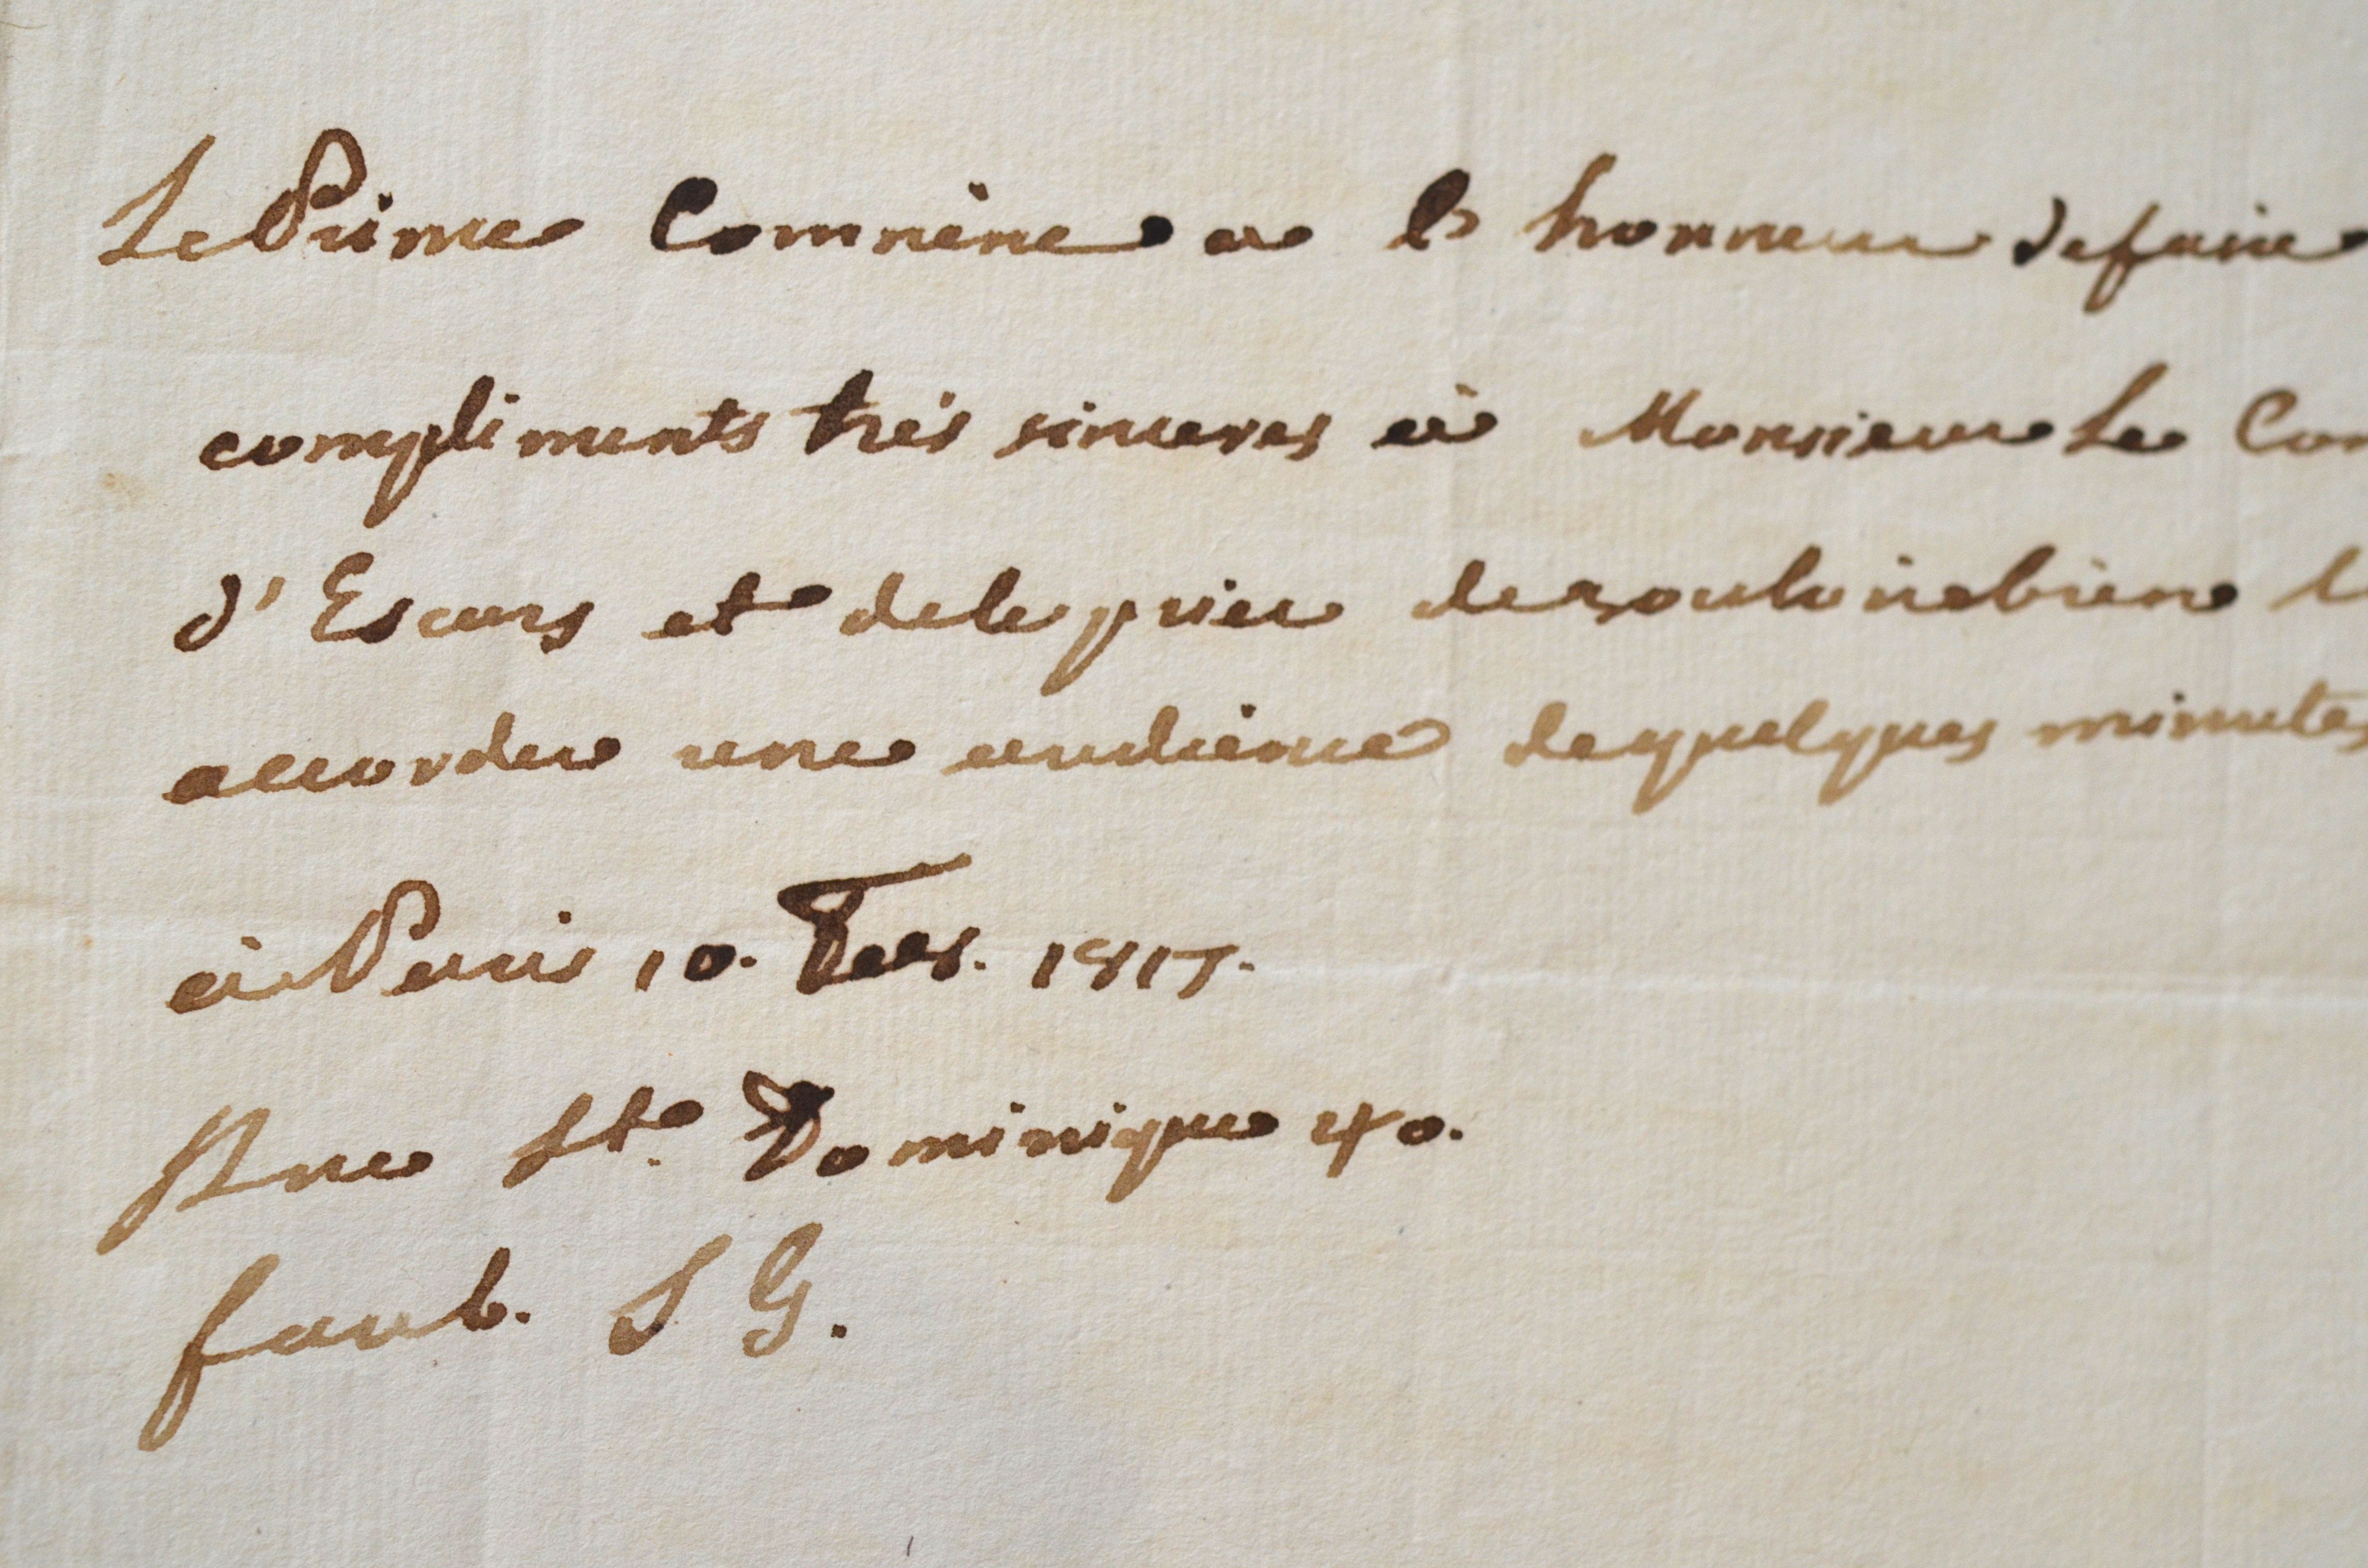 Le Prince Comnène a l'honneur de faire
compliments très sinceres à Monsieur Le Com
d'Escars et de le prier de vouloir bien l
accorder une audience de quelques minutes
à Paris 10. 1817.
Rue St. Dominique 40.
faub. S G.